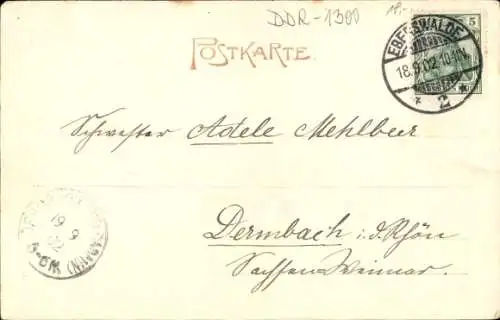 DDR-1300
18,-
POSTKARTE.
5
EBERSWALDE
18.9.02.10-11V.
* 2 *
Schwester Adele Mehlbeer
19
9
02
5-6N
Dermbach i. d. Rhön
Sachsen Weimar.